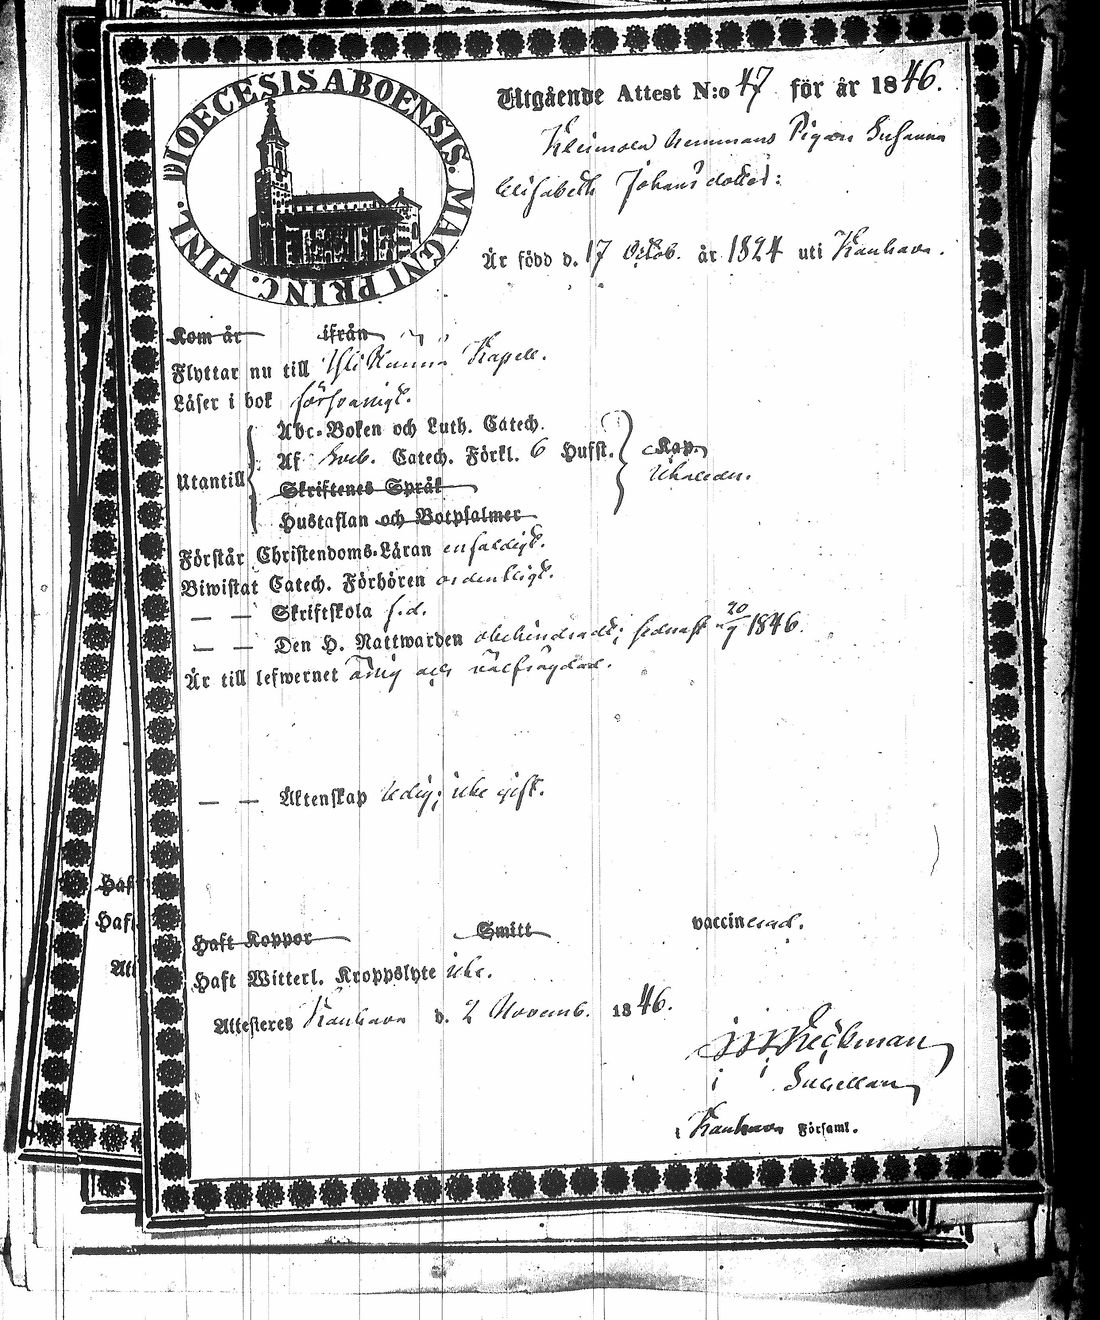 DIOECESIS ABOENSIS. MAGNI PRINC. FINL.
Utgående Attest N:o 47 för år 1846.
Kleimola hemmans Pigan Susanna
Elisabeth Johansdotter:
Är född d. 17 Octob. år 1824 uti Kauhava.
Kom år ifrån
Flyttar nu till Ylikannus Kapell.
Läser i bok försvarligt.
Abc-Boken och Luth. Catech.
Utantill Af Sveb. Catech. Förkl. 6 Hufst. Kap.
Skriftenes Språk
Hustaflan och Botpsalmer
Förstår Christendoms-Läran enfaldigt.
Biwistat Catech. Förhören ordentligt.
— — Skriftskola f.d.
— — Den H. Nattwarden obehindradt; sednast 20/9 1846.
Är till lefwernet ärlig och välfrägdad.
— — Äktenskap ledig; icke gift.
Haft Koppor Smitt vaccinerad.
Haft Witterl. Kroppslyte icke.
Attesteres Kauhava d. 2 Novemb. 1846.
i Kauhava Församl.
Haf
Haf
Att